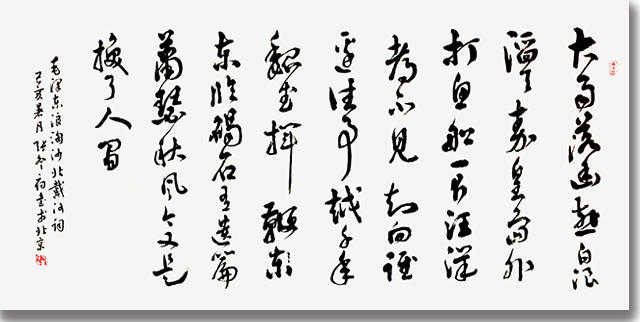 大雨落幽燕白浪
滔天秦皇岛外
打鱼船一片汪洋
都不见知向谁
边往事越千年
魏武挥鞭东
东临碣石有遗篇
萧瑟秋风今又是
换了人间
毛泽东浪淘沙北戴河词
己亥 月 书于北京